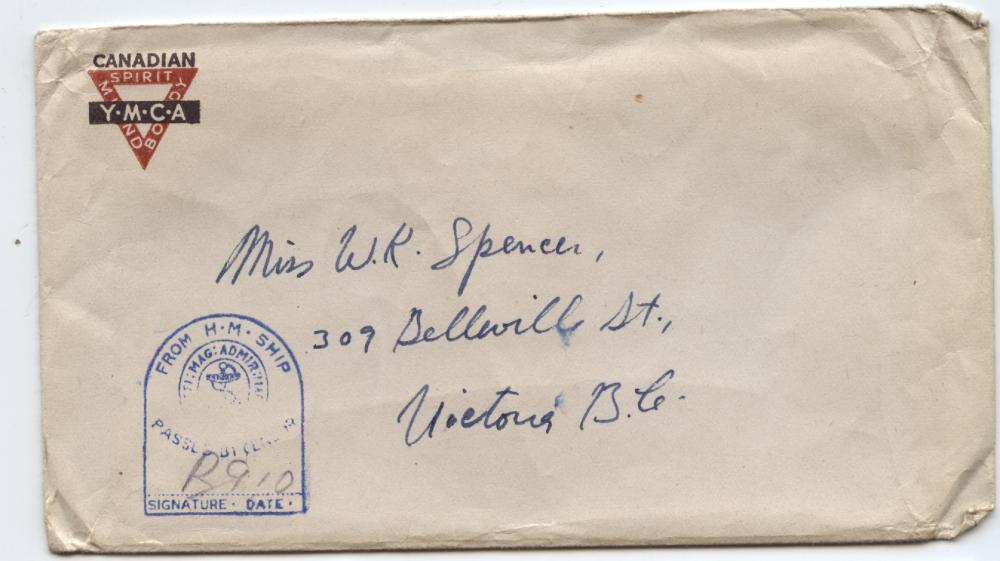 CANADIAN
SPIRIT
MIND
BODY
Y·M·C·A
Miss W.R. Spencer,
309 Belleville St.,
Victoria B.C.
FROM H·M· SHIP
MAG: ADMIR:
PASSED BY CENSOR
SIGNATURE · DATE ·